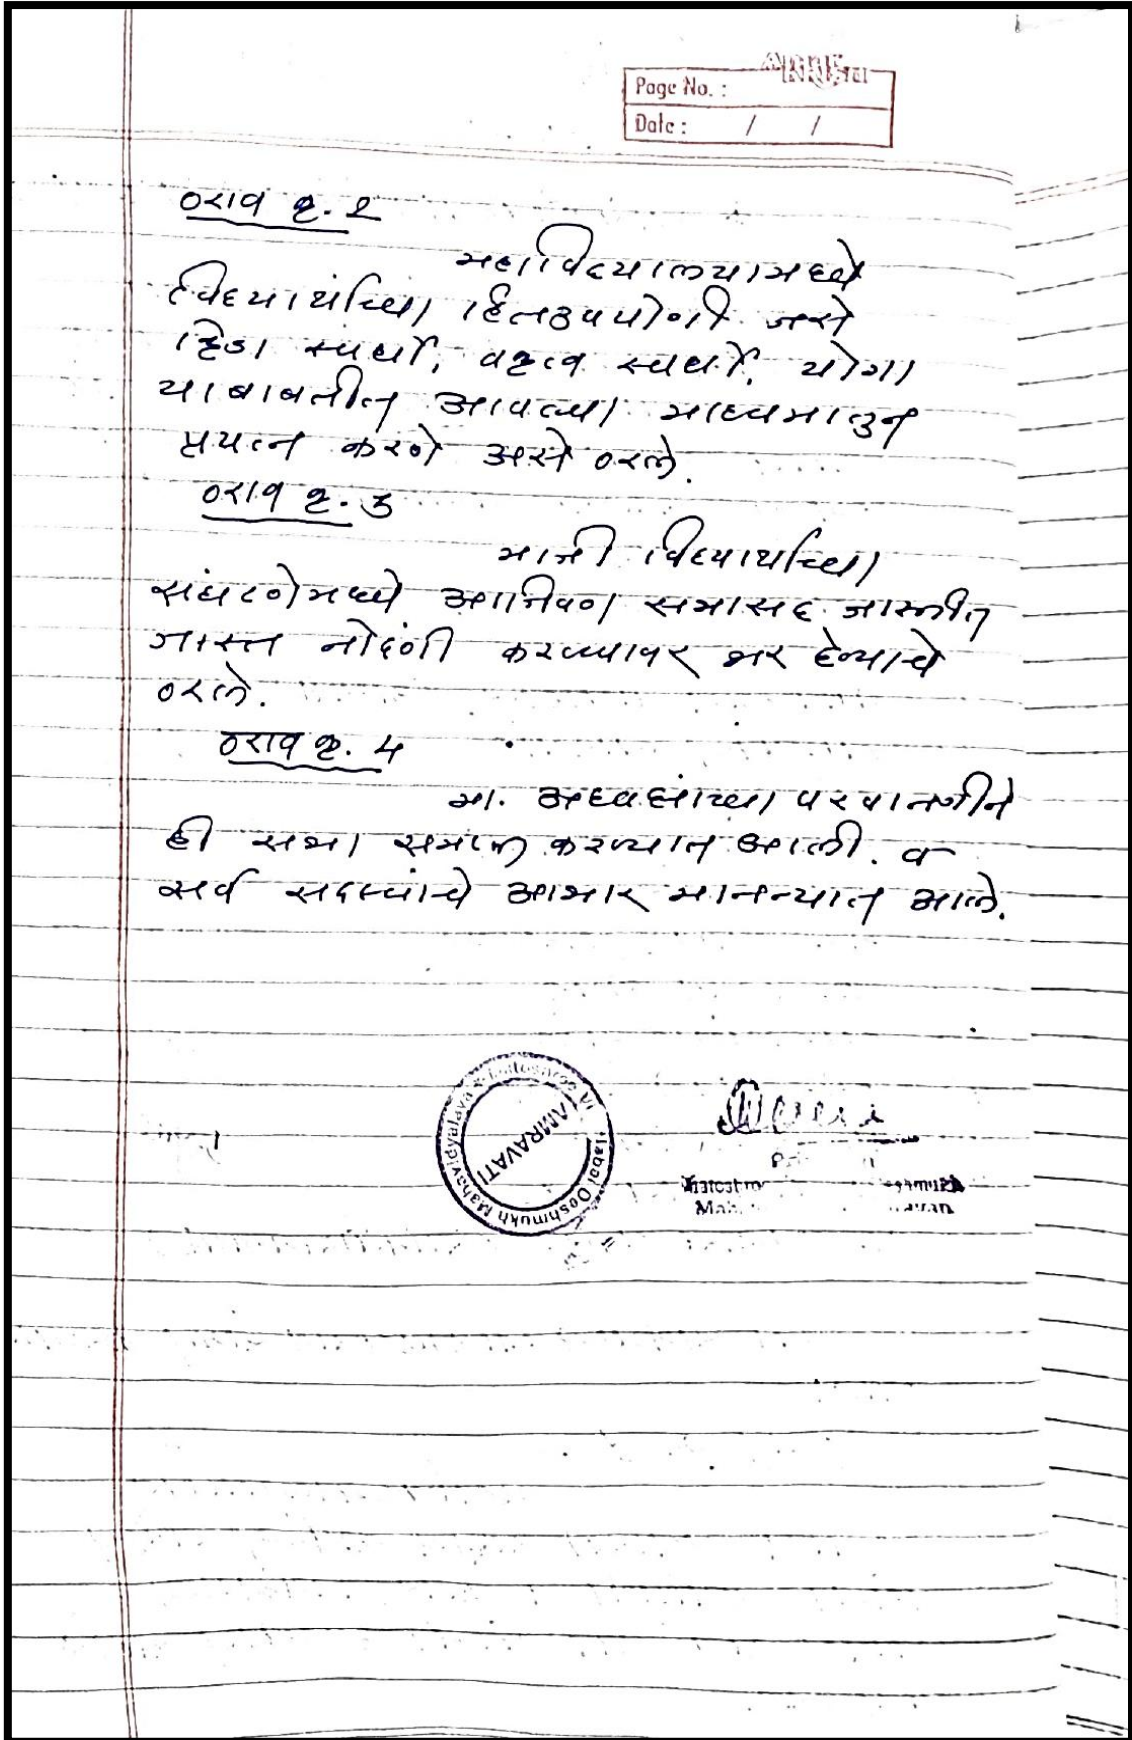 Page No. :
Date : / /
ठराव क्र. २
महाविद्यालयामध्ये
विद्यार्थ्यांच्या हितउपयोगी जसे
क्रिडा स्पर्धा, वक्तृत्व स्पर्धा, योगा
याबाबतीत आपल्या माध्यमातुन
प्रयत्न करणे असे ठरले.
ठराव क्र. ३
माजी विद्यार्थ्यांच्या
संघटणेमध्ये आजिवण सभासद जास्तीत
जास्त नोदंणी करण्यावर भर देन्याचे
ठरले.
ठराव क्र. 4
मा. अध्यक्षांच्या परवानगीने
ही सभा समाप्त करण्यात आली. व
सर्व सदस्यांचे आभार मानन्यात आले.
AMRAVATI
Deshmukh Mahavidyalaya